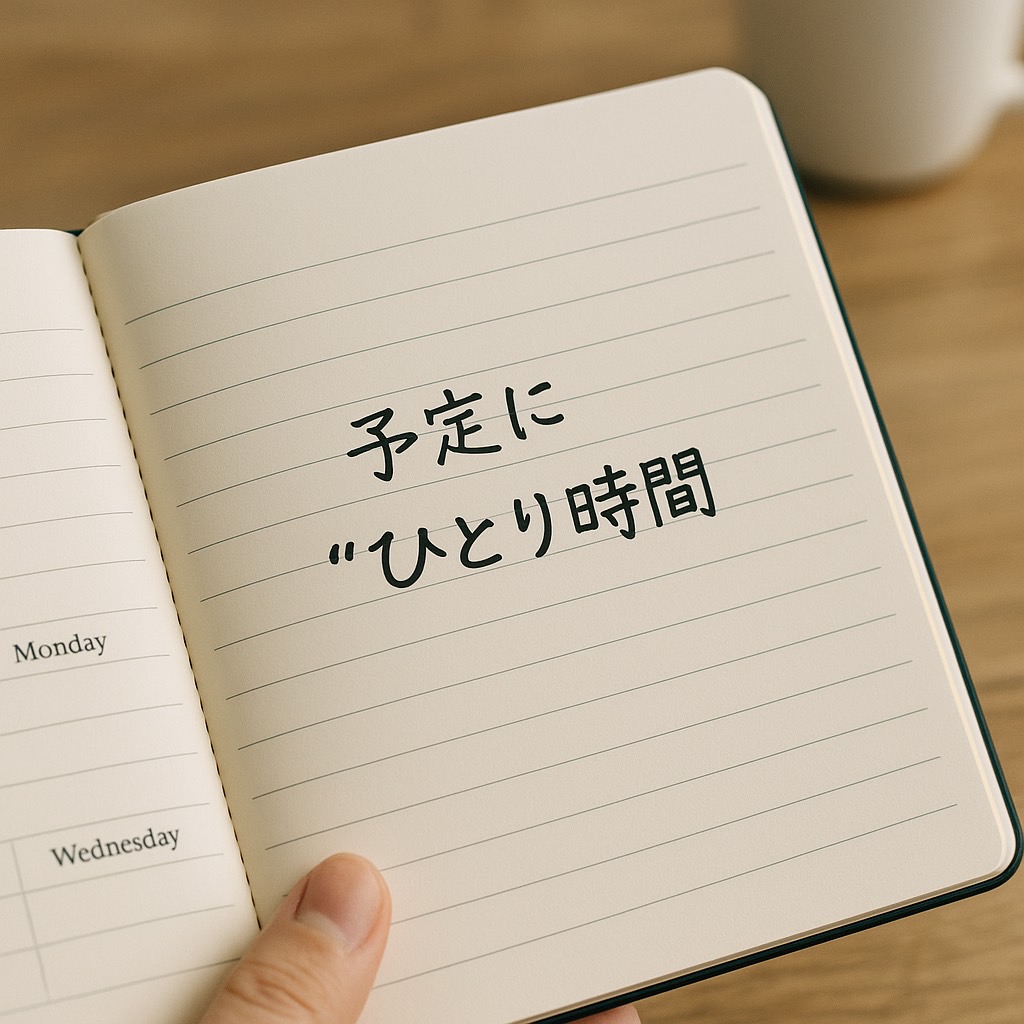 Monday
Wednesday
予定に
“ひとり時間